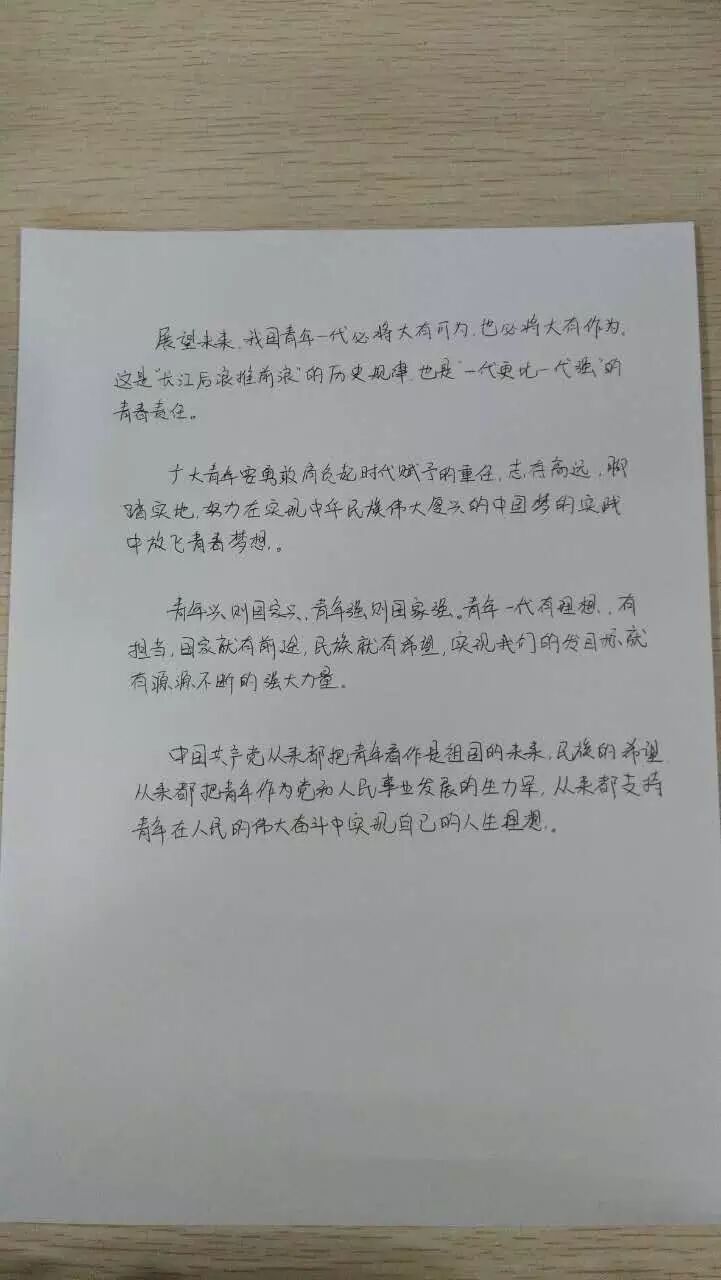 展望未来,我国青年一代必将大有可为,也必将大有作为。
这是“长江后浪推前浪”的历史规律,也是“一代更比一代强”的
青春责任。
广大青年要勇敢肩负起时代赋予的重任,志存高远,脚
踏实地,努力在实现中华民族伟大复兴的中国梦的实践
中放飞青春梦想。
青年兴则国家兴,青年强则国家强。青年一代有理想,有
担当,国家就有前途,民族就有希望,实现我们的发目标就
有源源不断的强大力量。
中国共产党从来都把青年看作是祖国的未来,民族的希望
从来都把青年作为党和人民事业发展的生力军,从来都支持
青年在人民的伟大奋斗中实现自己的人生理想。